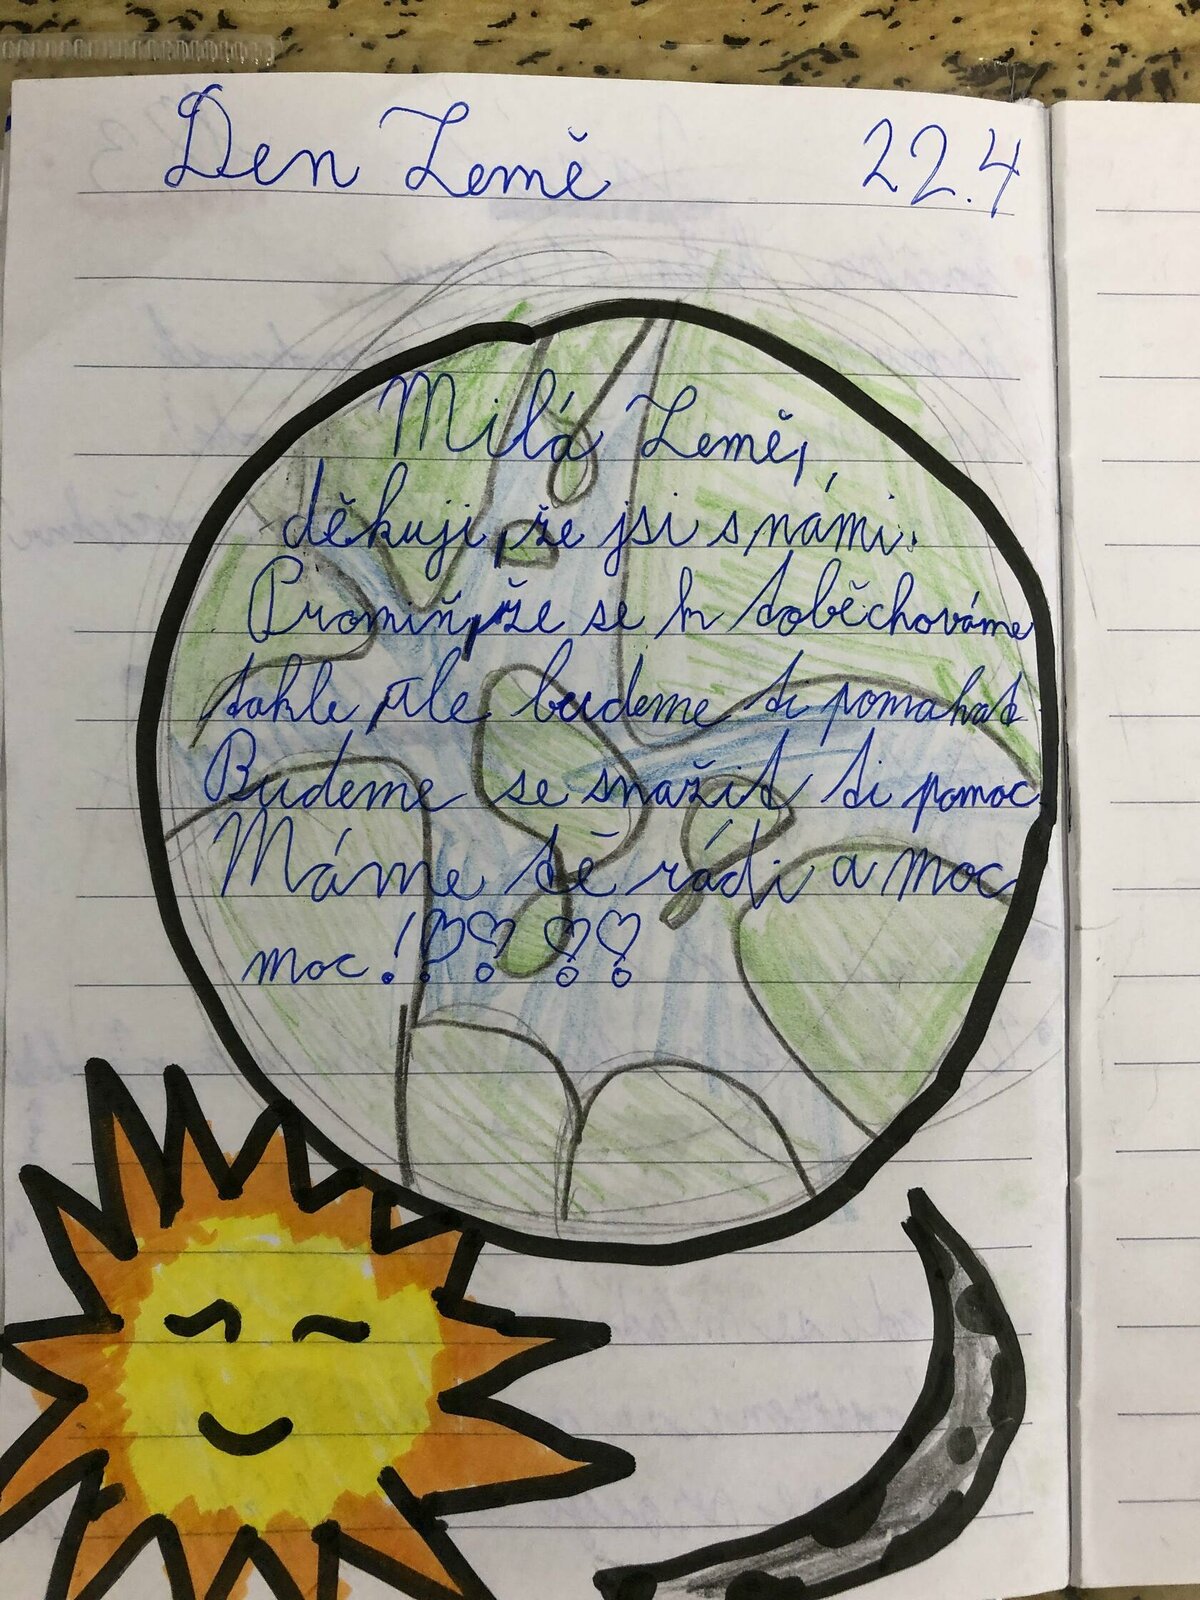 Den Země 22.4
Milá Země,
děkuji, že jsi s námi.
Promiň, že se k tobě chováme
takle, ale budeme ti pomahat
Budeme se snažit ti pomoc
Máme tě rádi a moc
moc!